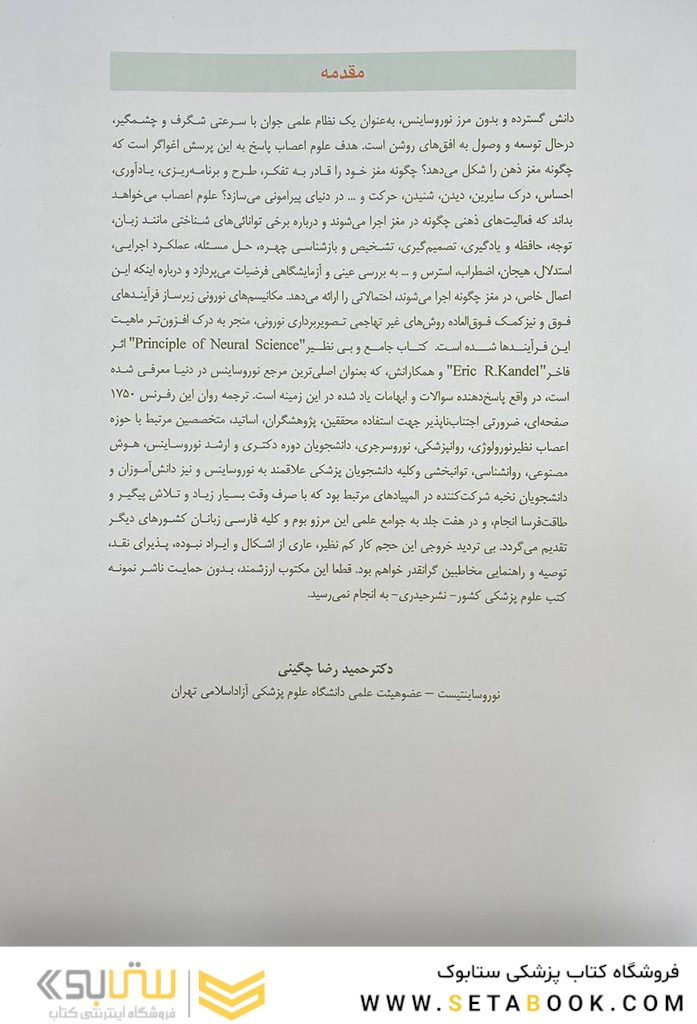 مقدمه
دانش گسترده و بدون مرز نوروساینس، به‌عنوان یک نظام علمی جوان با سرعتی شگرف و چشمگیر،
درحال توسعه و وصول به افق‌های روشن است. هدف علوم اعصاب پاسخ به این پرسش اغواگر است که
چگونه مغز ذهن را شکل می‌دهد؟ چگونه مغز خود را قادر به تفکر، طرح و برنامه‌ریزی، یادآوری،
احساس، درک سایرین، دیدن، شنیدن، حرکت و ... در دنیای پیرامونی می‌سازد؟ علوم اعصاب می‌خواهد
بداند که فعالیت‌های ذهنی چگونه در مغز اجرا می‌شوند و درباره برخی توانائی‌های شناختی مانند زبان،
توجه، حافظه و یادگیری، تصمیم‌گیری، تشخیص و بازشناسی چهره، حل مسئله، عملکرد اجرایی،
استدلال، هیجان، اضطراب، استرس و ... به بررسی عینی و آزمایشگاهی فرضیات می‌پردازد و درباره اینکه این
اعمال خاص، در مغز چگونه اجرا می‌شوند، احتمالاتی را ارائه می‌دهد. مکانیسم‌های نورونی زیرساز فرآیندهای
فوق و نیزکمک فوق‌العاده روش‌های غیر تهاجمی تصویربرداری نورونی، منجر به درک افزون‌تر ماهیت
این فرآیندها شده است. کتاب جامع و بی نظیر"Principle of Neural Science" اثر
فاخر"Eric R.Kandel" و همکارانش، که بعنوان اصلی‌ترین مرجع نوروساینس در دنیا معرفی شده
است، در واقع پاسخ‌دهنده سوالات و ابهامات یاد شده در این زمینه است. ترجمه روان این رفرنس ۱۷۵۰
صفحه‌ای، ضرورتی اجتناب‌ناپذیر جهت استفاده محققین، پژوهشگران، اساتید، متخصصین مرتبط با حوزه
اعصاب نظیرنورولوژی، روانپزشکی، نوروسرجری، دانشجویان دوره دکتری و ارشد نوروساینس، هوش
مصنوعی، روانشناسی، توانبخشی وکلیه دانشجویان پزشکی علاقمند به نوروساینس و نیز دانش‌آموزان و
دانشجویان نخبه شرکت‌کننده در المپیادهای مرتبط بود که با صرف وقت بسیار زیاد و تلاش پیگیر و
طاقت‌فرسا انجام، و در هفت جلد به جوامع علمی این مرزو بوم و کلیه فارسی زبانان کشورهای دیگر
تقدیم می‌گردد. بی تردید خروجی این حجم کار کم نظیر، عاری از اشکال و ایراد نبوده، پذیرای نقد،
توصیه و راهنمایی مخاطبین گرانقدر خواهم بود. قطعا این مکتوب ارزشمند، بدون حمایت ناشر نمونه
کتب علوم پزشکی کشور- نشرحیدری- به انجام نمی‌رسید.
دکترحمید رضا چگینی
نوروساینتیست – عضوهیئت علمی دانشگاه علوم پزشکی آزاداسلامی تهران
فروشگاه کتاب پزشکی ستابوک
WWW.SETABOOK.COM
ستابوک
فروشگاه اینترنتی کتاب